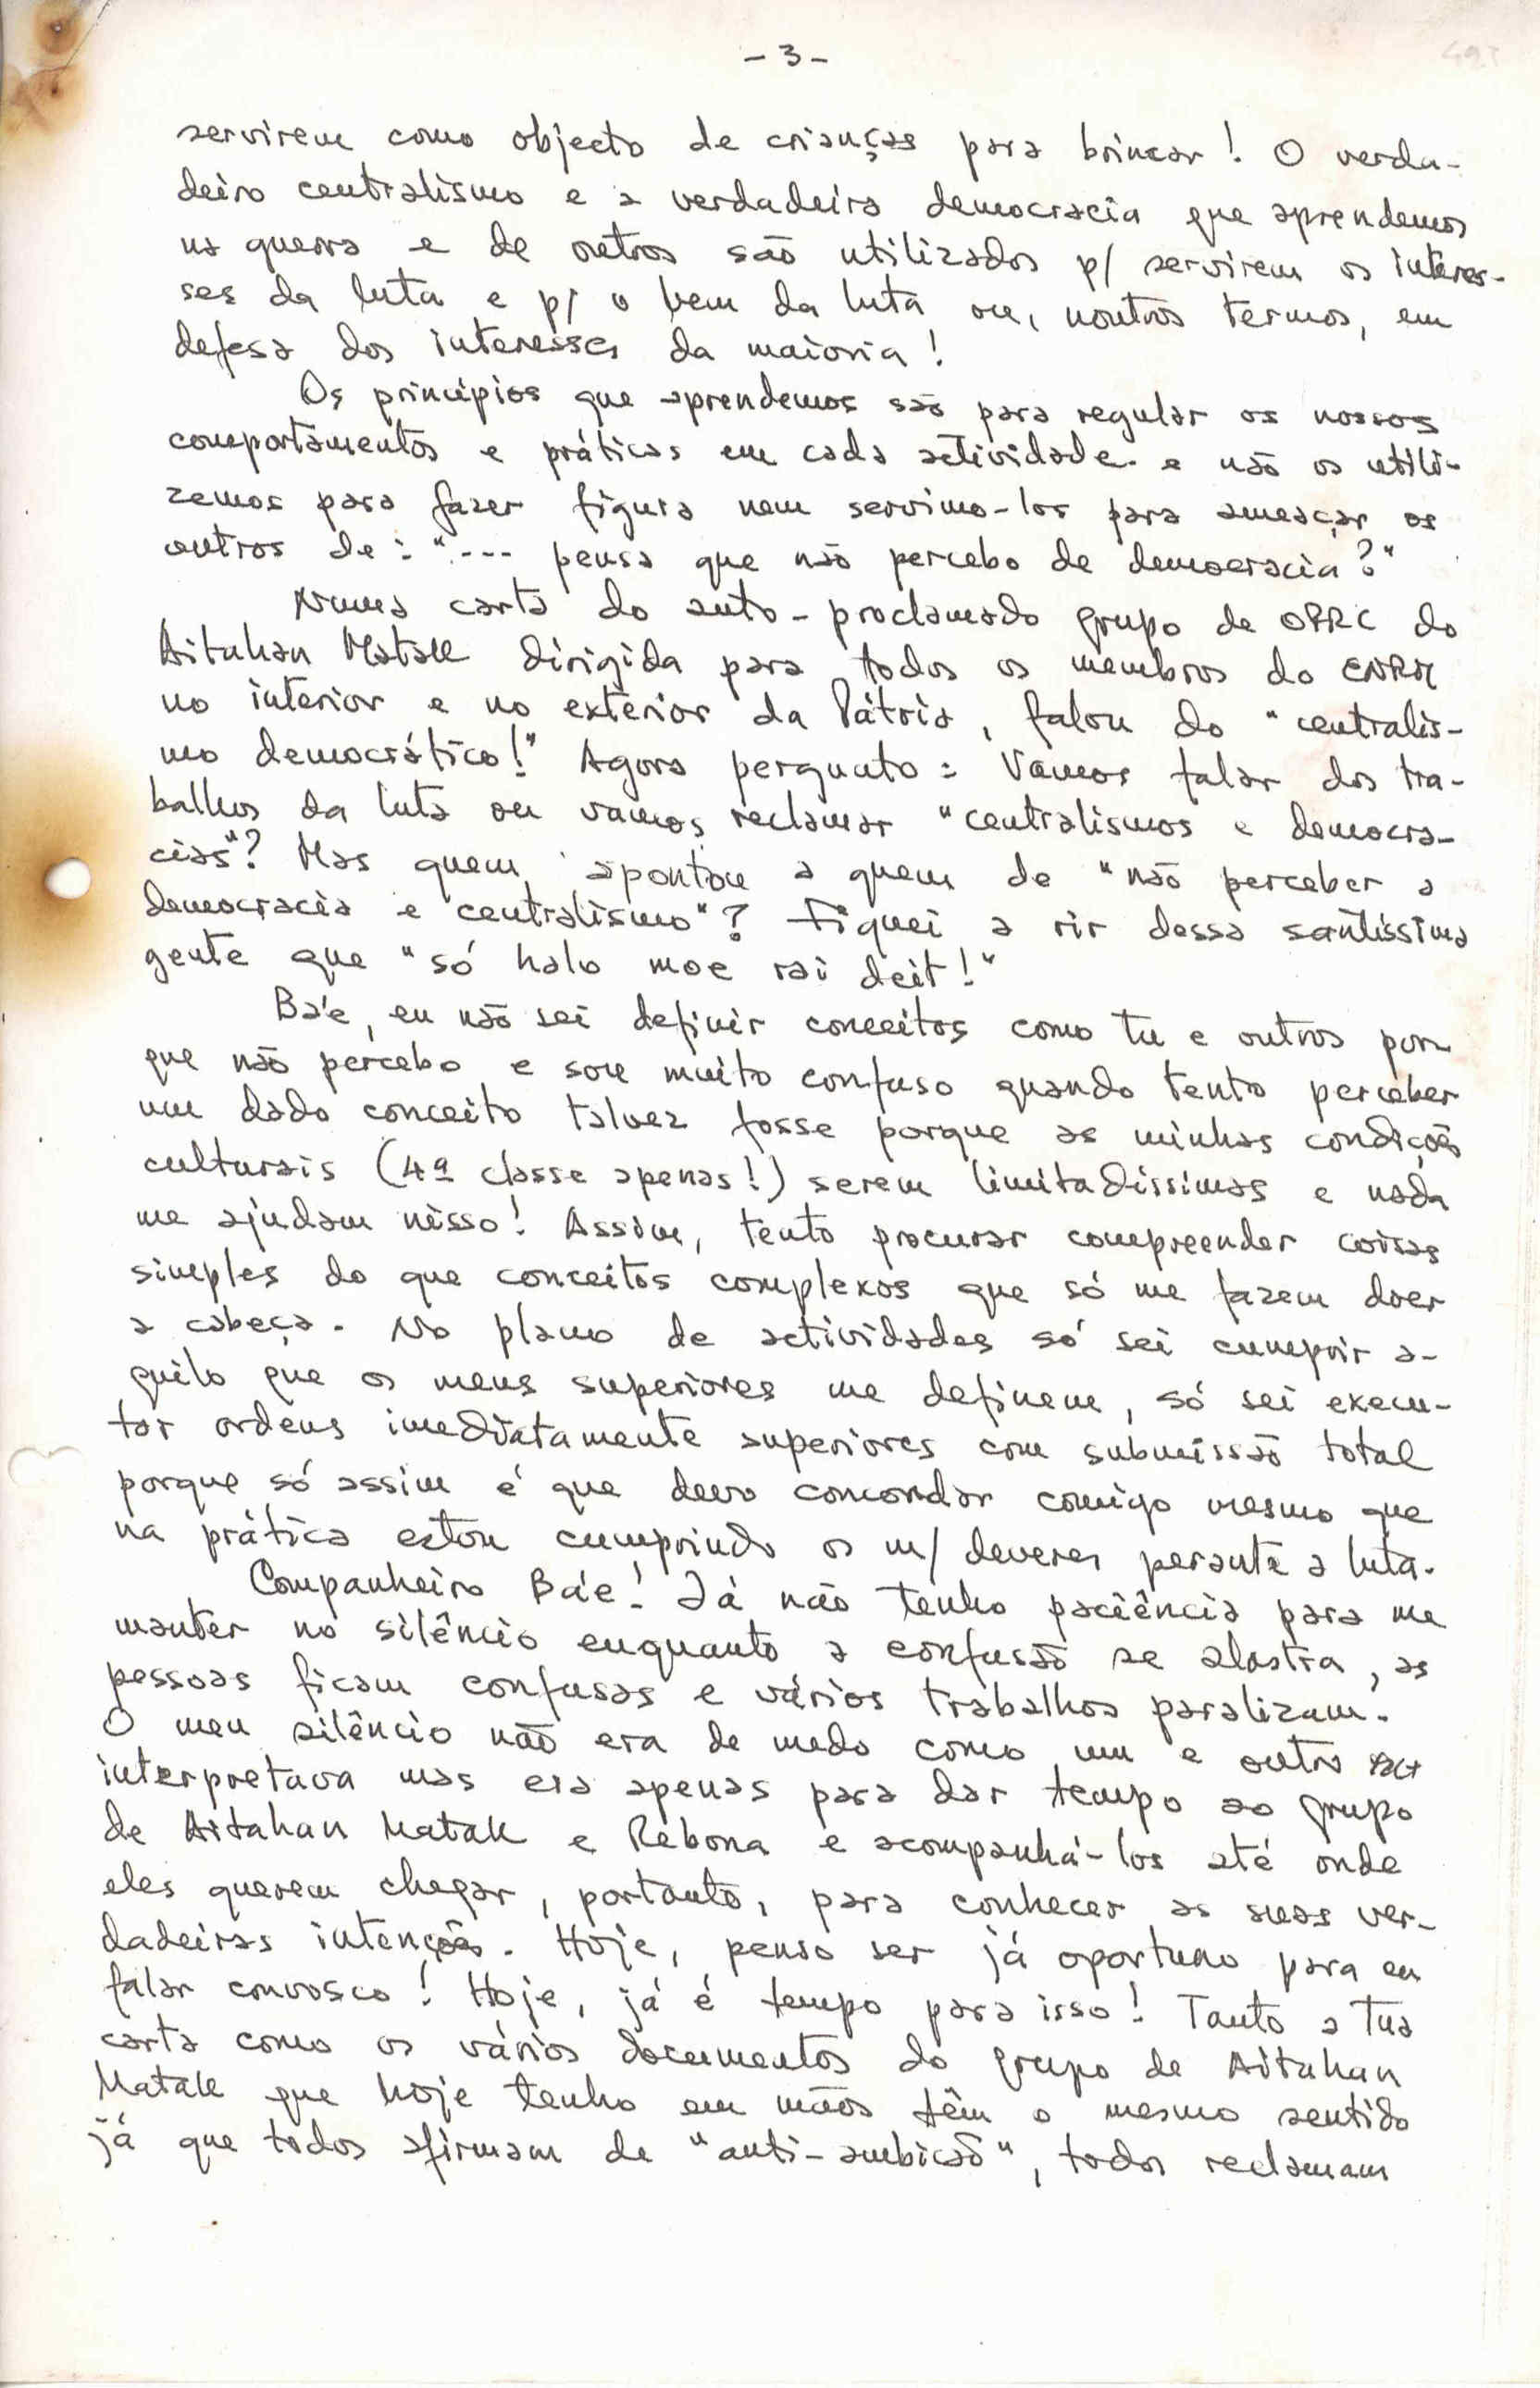 - 3 -
servirem como objecto de crianças para brincar! O verda-
deiro centralismo e a verdadeira democracia que aprendemos
na guerra e de outros são utilizados p/ servirem os interes-
ses da luta e p/ o bem da luta ou, noutros termos, em
defesa dos interesses da maioria!
Os princípios que aprendemos são para regular os nossos
comportamentos e práticas em cada actividade e não os utili-
zemos para fazer figura nem servimo-los para ameaçar os
outros de: "... pensa que não percebo de democracia?"
Numa carta do auto-proclamado grupo de OPRC do
Aitahan Matak dirigida para todos os membros do CNRM
no interior e no exterior da Pátria, falou do "centralis-
mo democrático!" Agora pergunto: Vamos falar dos tra-
balhos da luta ou vamos reclamar "centralismos e democra-
cias"? Mas quem apontou a quem de "não perceber a
democracia e centralismo"? Fiquei a rir dessa santíssima
gente que "só halo moe rai deit!"
Ba'e, eu não sei definir conceitos como tu e outros por-
que não percebo e sou muito confuso quando tento perceber
um dado conceito talvez fosse porque as minhas condições
culturais (4ª classe apenas!) serem limitadíssimas e nada
me ajudam nisso! Assim, tento procurar compreender coisas
simples do que conceitos complexos que só me fazem doer
a cabeça. No plano de actividades só sei cumprir a-
quilo que os meus superiores me definem, só sei execu-
tar ordens imediatamente superiores com submissão total
porque só assim é que devo concordar comigo mesmo que
na prática estou cumprindo os m/ deveres perante a luta.
Companheiro Ba'e! Já não tenho paciência para me
manter no silêncio enquanto a confusão se alastra, as
pessoas ficam confusas e vários trabalhos paralizam!
O meu silêncio não era de medo como um e outro
interpretava mas era apenas para dar tempo ao grupo
de Aitahan Matak e Rebona e acompanhá-los até onde
eles querem chegar, portanto, para conhecer as suas ver-
dadeiras intenções. Hoje, penso ser já oportuno para eu
falar convosco! Hoje, já é tempo para isso! Tanto a tua
carta como os vários documentos do grupo de Aitahan
Matak que hoje tenho em mãos têm o mesmo sentido
já que todos afirmam de "anti-ambição", todos reclamam